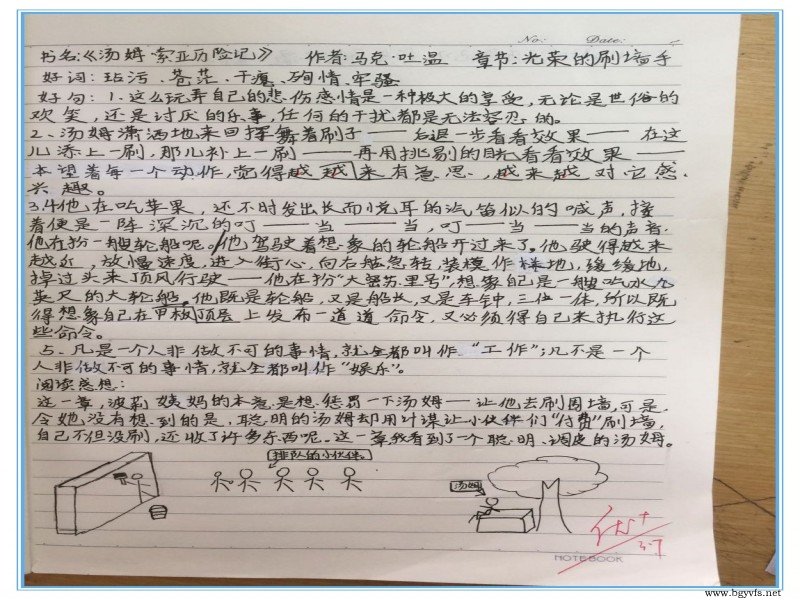 No:
Date:
书名:《汤姆·索亚历险记》 作者:马克·吐温 章节:光荣的刷墙手
好词:玷污、苍茫、干瘪、殉情、牢骚
好句:1、这么玩弄自己的悲伤感情是一种极大的享受,无论是世俗的
欢笑,还是讨厌的乐事,任何的干扰都是无法容忍的。
2、汤姆潇洒地来回挥舞着刷子——后退一步看看效果——在这
儿添上一刷,那儿补上一刷——再用挑剔的目光看看效果——
本望着每一个动作,觉得越越来有意思,越来越对它感
兴趣。
3.4他在吃苹果,还不时发出长而悦耳的汽笛似的喊声,接
着便是一阵深沉的叮——当——当,叮——当——当的声音.
他在扮一艘轮船呢。他驾驶着想象的轮船开过来了。他驶得越来
越近,放慢速度,进入街心,向右舷急转,装模作样地,缓缓地,
掉过头来顶风行驶——他在扮“大密苏里号”,想象自己是一艘吃水九
英尺的大轮船。他既是轮船,又是船长,又是车钟,三位一体,所以既
得想象自己在甲板顶层上发布一道道命令,又必须得自己来执行这
些命令。
5、凡是一个人非做不可的事情,就全都叫作“工作”;凡不是一个
人非做不可的事情,就全都叫作“娱乐”。
阅读感想:
这一章,波莉姨妈的本意是想惩罚一下汤姆——让他去刷围墙,可是,
令她没有想到的是,聪明的汤姆却用计谋让小伙伴们“付费”刷墙,
自己不但没刷,还收了许多东西呢。这一章我看到了一个聪明、调皮的汤姆。
排队的小伙伴
汤姆
优+
3.7
NOTEBOOK
www.bgyvfs.net